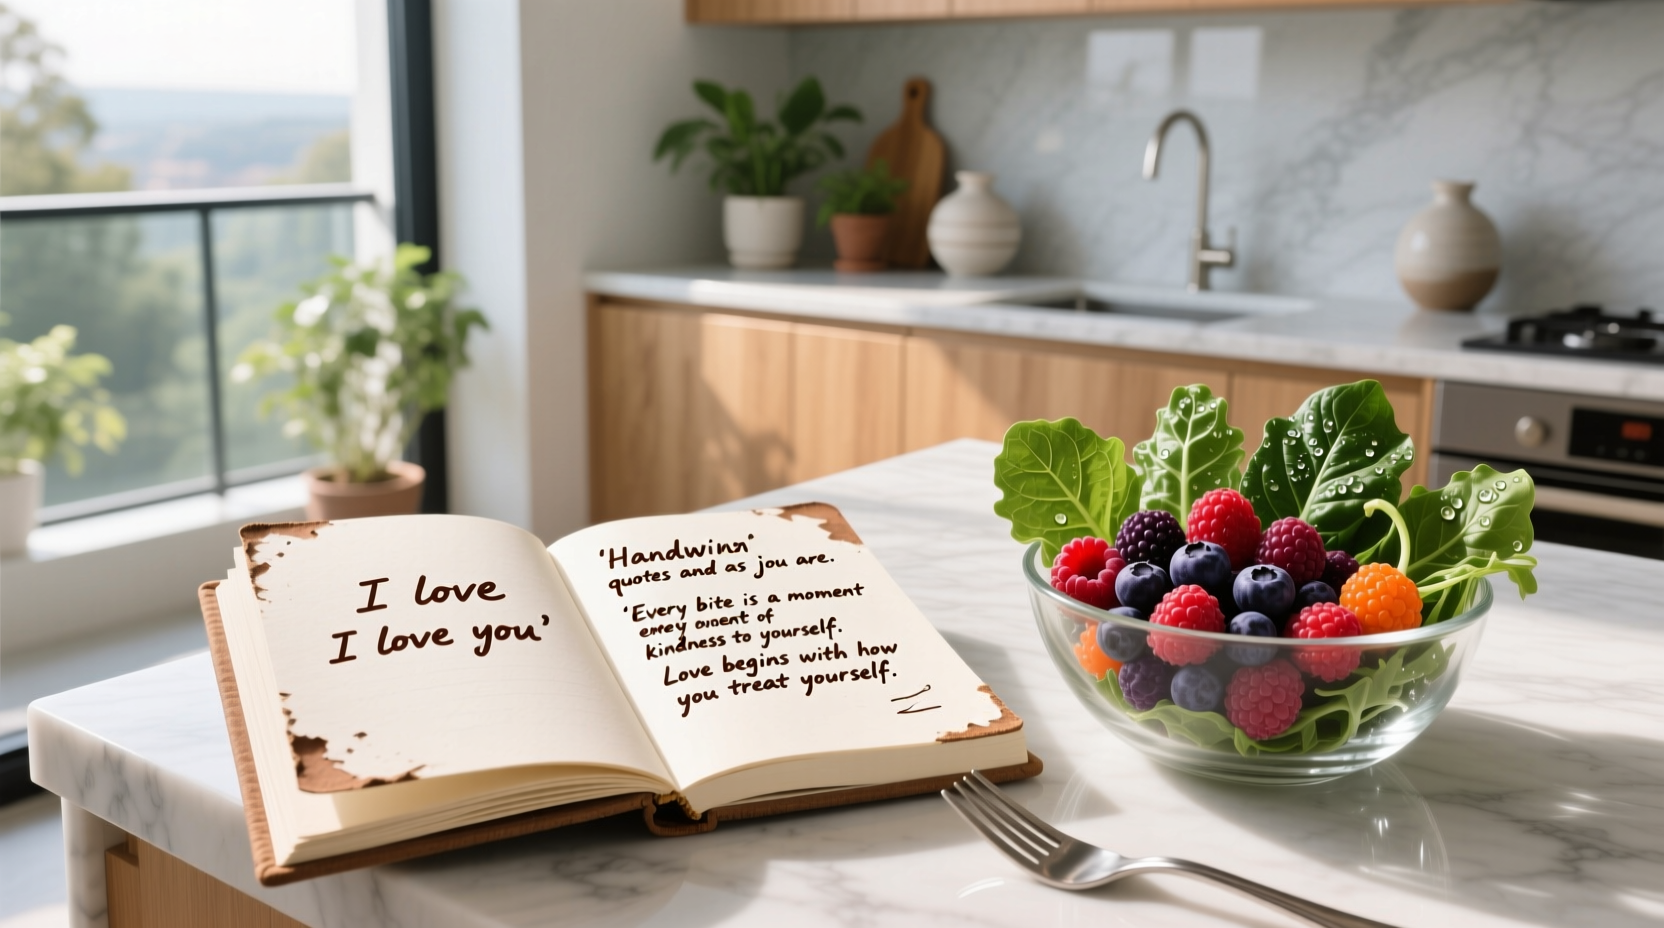 I love
I love you'
'Handwinn'
quotes and as you are.
'Every bite is a moment
emey oment of
kindness to yourself.
Love begins with how
you treat yourself.